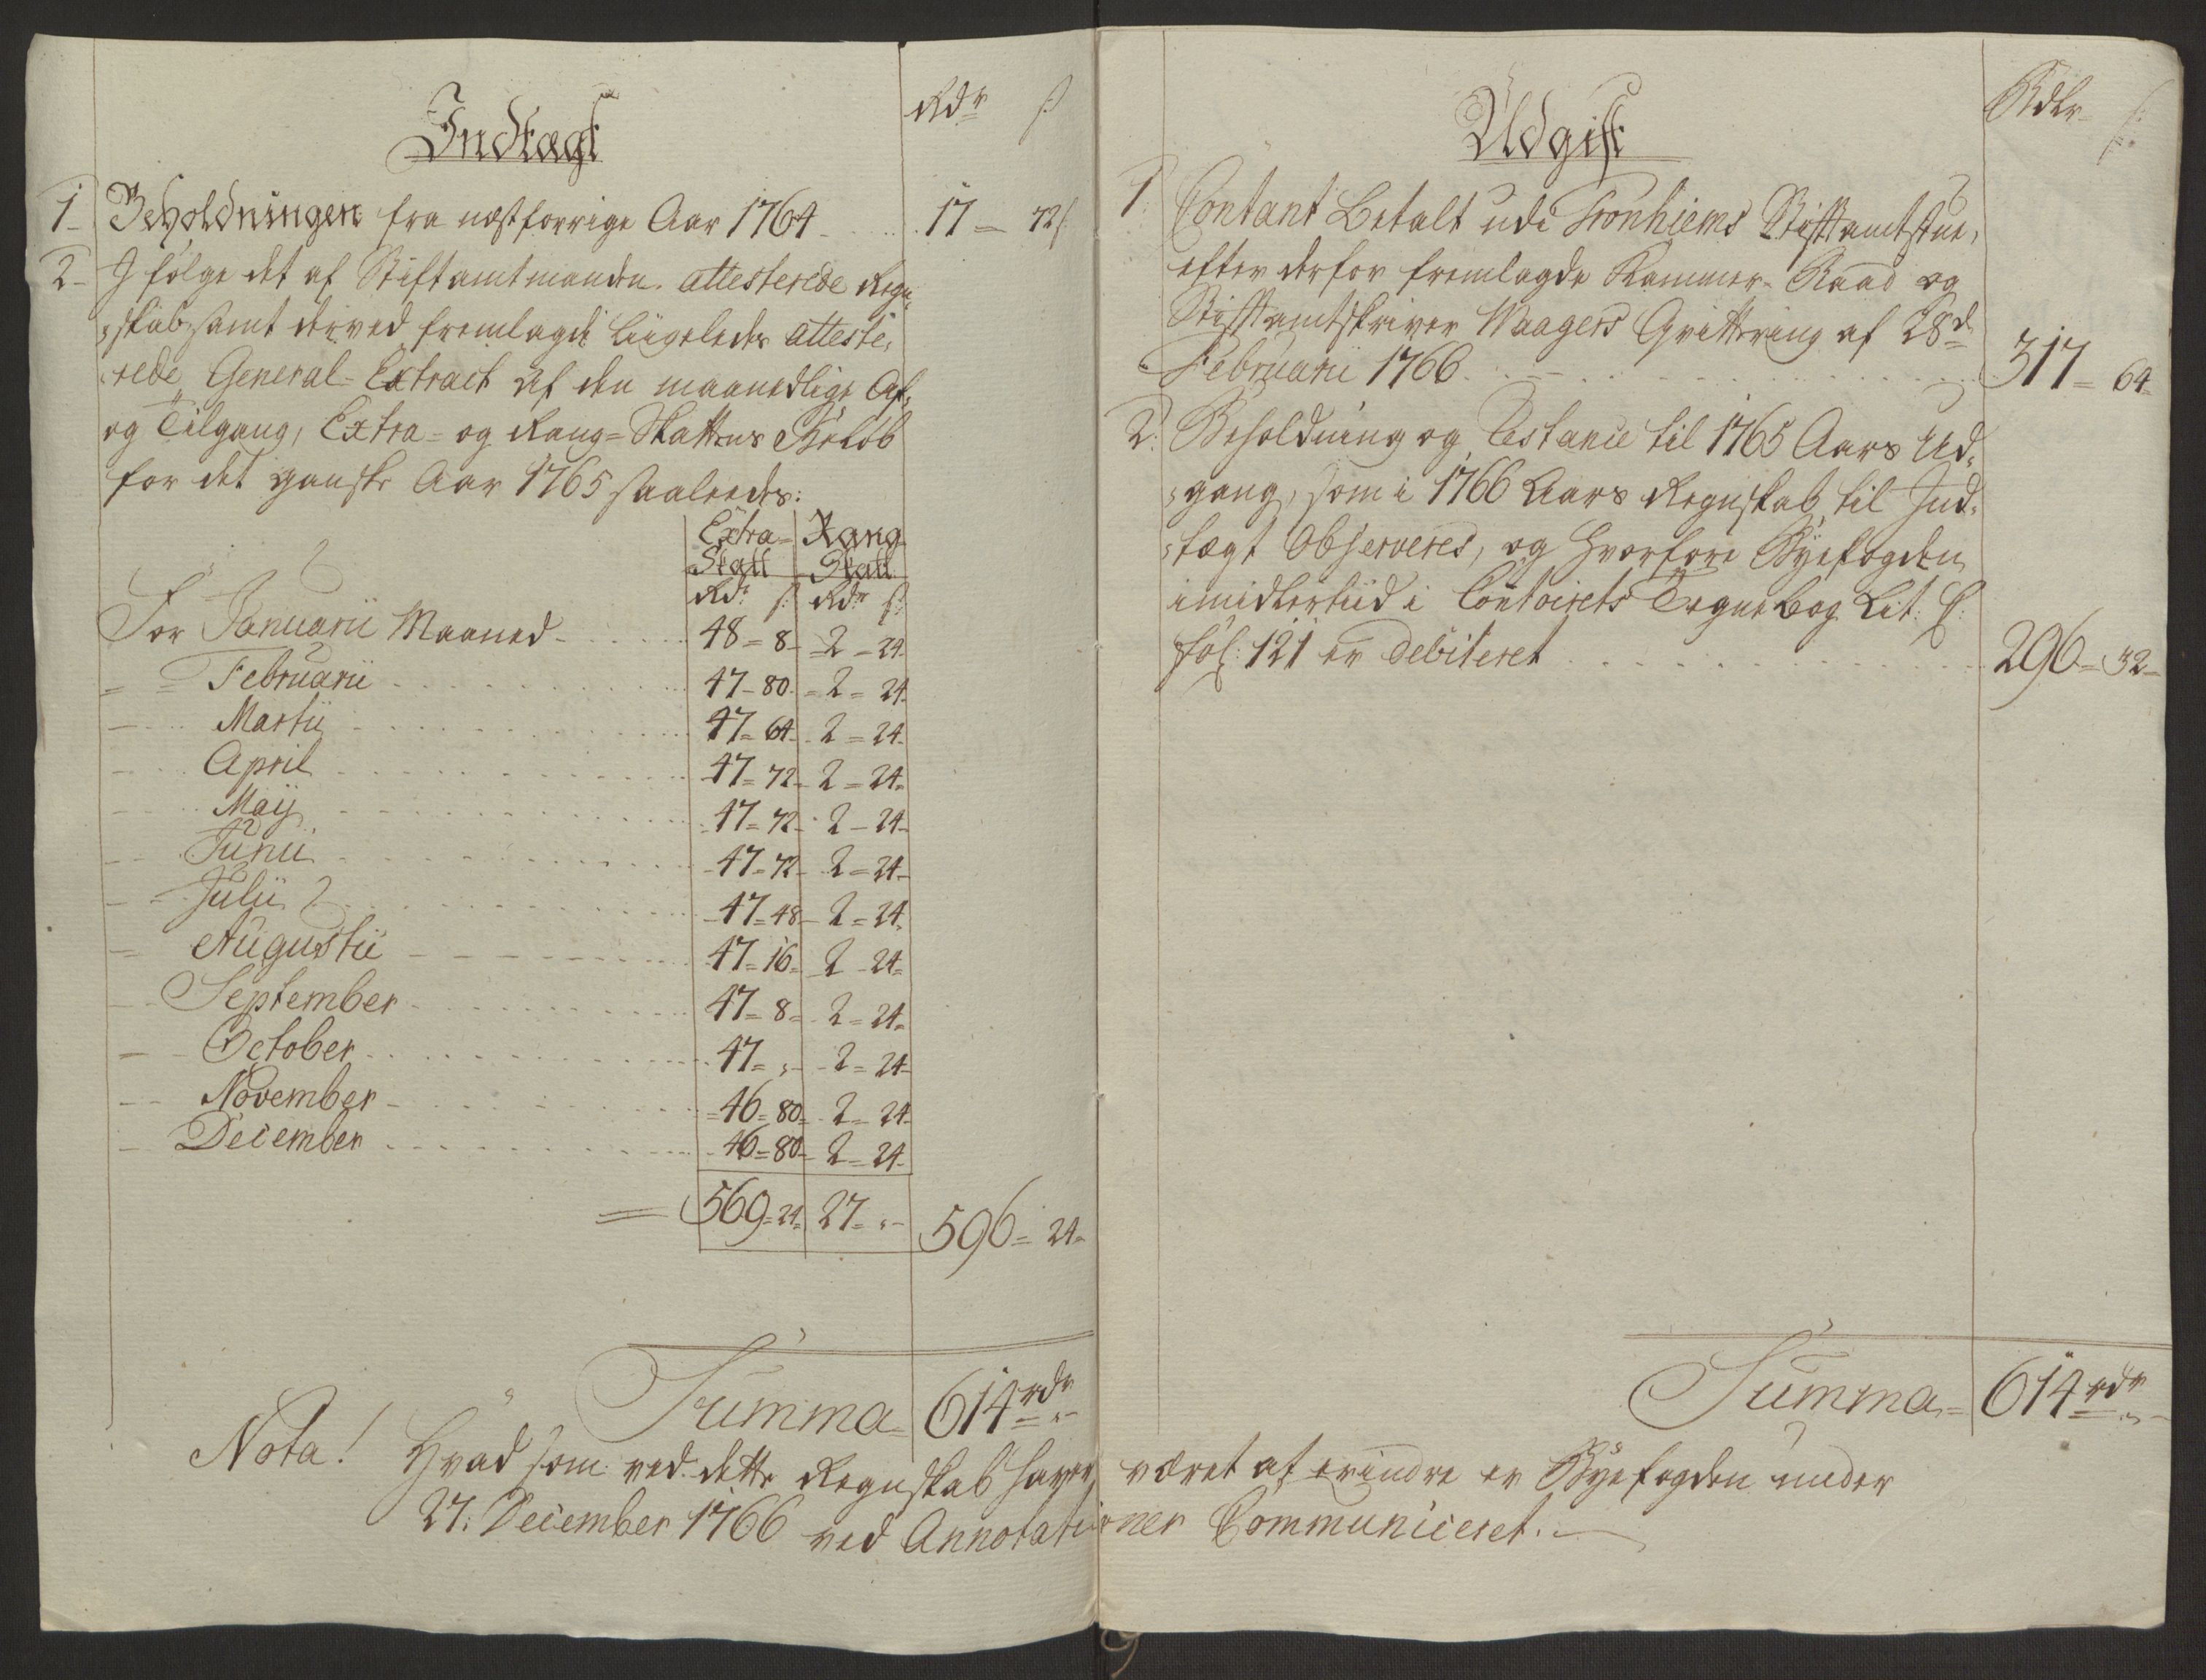 Indtægt
Rdr ß
1 Beholdningen fra næstforrige Aar 1764 17 = 72 ß
2 I følge det af Stiftamtmanden attesterede Regn-
skab, samt derved fremlagde liigeledes atteste-
rede General-Extract af den maanedlige Af-
og Tilgang, Extra- og Rang-Skattens Beløb
for det gandske Aar 1765 saaleedes:
Extra- Rang
Skatt Skatt
Rdr ß Rdr ß
For Januarii Maaned 48 = 8 2 = 24
Februarii 47 - 80 2 = 24
Martii 47 = 64 2 = 24
April 47 = 72 2 = 24
Maij 47 = 72 2 - 24
Junii 47 = 72 2 = 24
Julii 47 = 48 2 = 24
Augustii 47 = 16 2 - 24
September 47 = 8 2 = 24
October 47 = „ 2 = 24
November 46 = 80 2 = 24
December 46 = 80 2 = 24
= 569 = 24 27 = „ 596 = 24
Summa 614 rdr „
Udgift
Rdlr ß
1 Contant Betalt udi Tronhiems Stiftamtstue,
efter derfor fremlagde Kammer-Raad og
Stiftamtskriver Waagers Qvittering af 28d
Februarii 1766 317 = 64
2. Beholdning og Restance til 1765 Aars Ud-
gang, som i 1766 Aars Regnskab til Ind-
tægt observeres, og hvorfore Byefogden
imidlertiid i Contoirets Tegnebog Lit:
fol: 121 er debiteret 296 = 32
Summa 614 rdr „
Nota! Hvad som ved dette Regnskab haver været at erindre er Byefogden under
27: December 1766 ved Annotationer Communiceret.